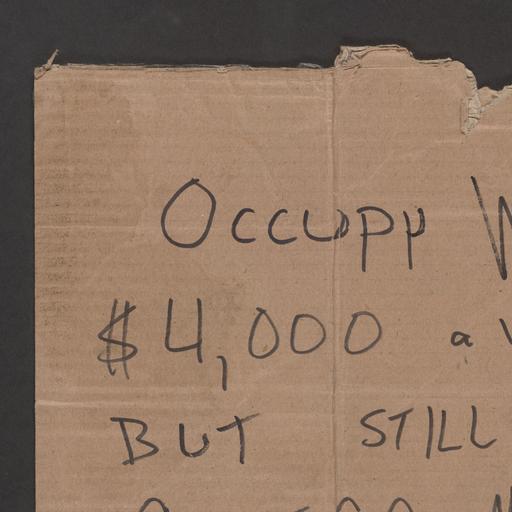 Occupy
$4,000 a
BUT STILL